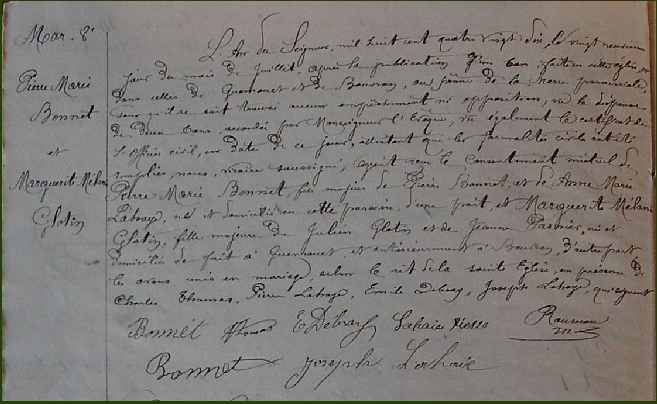 Mar. 8e
Pierre Marie
Bonnet
et
Marguerit Mélanie
Glotin
L'An du Seigneur, mil huit cent quatre vingt dix, le vingt neuvième
jour du mois de Juillet, après la publication d'un ban faite en cette église et
dans celles de Guernouet et de Bourran, au prône de la messe paroissiale,
sans qu'il se soit trouvé aucun empêchement ni opposition, vu la dispense
de deux bans, accordée par Monseigneur l'Evêque, vu également le certificat de
l'officier civil, en date de ce jour, attestant que les formalités civiles ont été
remplies, nous, vicaire soussigné, ayant reçu le consentement mutuel de
Pierre Marie Bonnet, fils majeur de Pierre Bonnet, et de Anne Marie
Lahaye, né et domicilié en cette paroisse, d'une part, et Marguerit Mélanie
Glotin, fille majeure de Julien Glotin et de Jeanne née et
domiciliée de fait à Guernouet, et antérieurement à Bourran, d'autre part
les avons unis en mariage, selon le rit de la sainte Eglise, en présence de
Charles Thomas, Pierre Lahaye, Emile Debray, Joseph Lahaye, qui signent
Bonnet Thomas E Debray Lahaie Pierre
Bonnet Joseph Lahaie